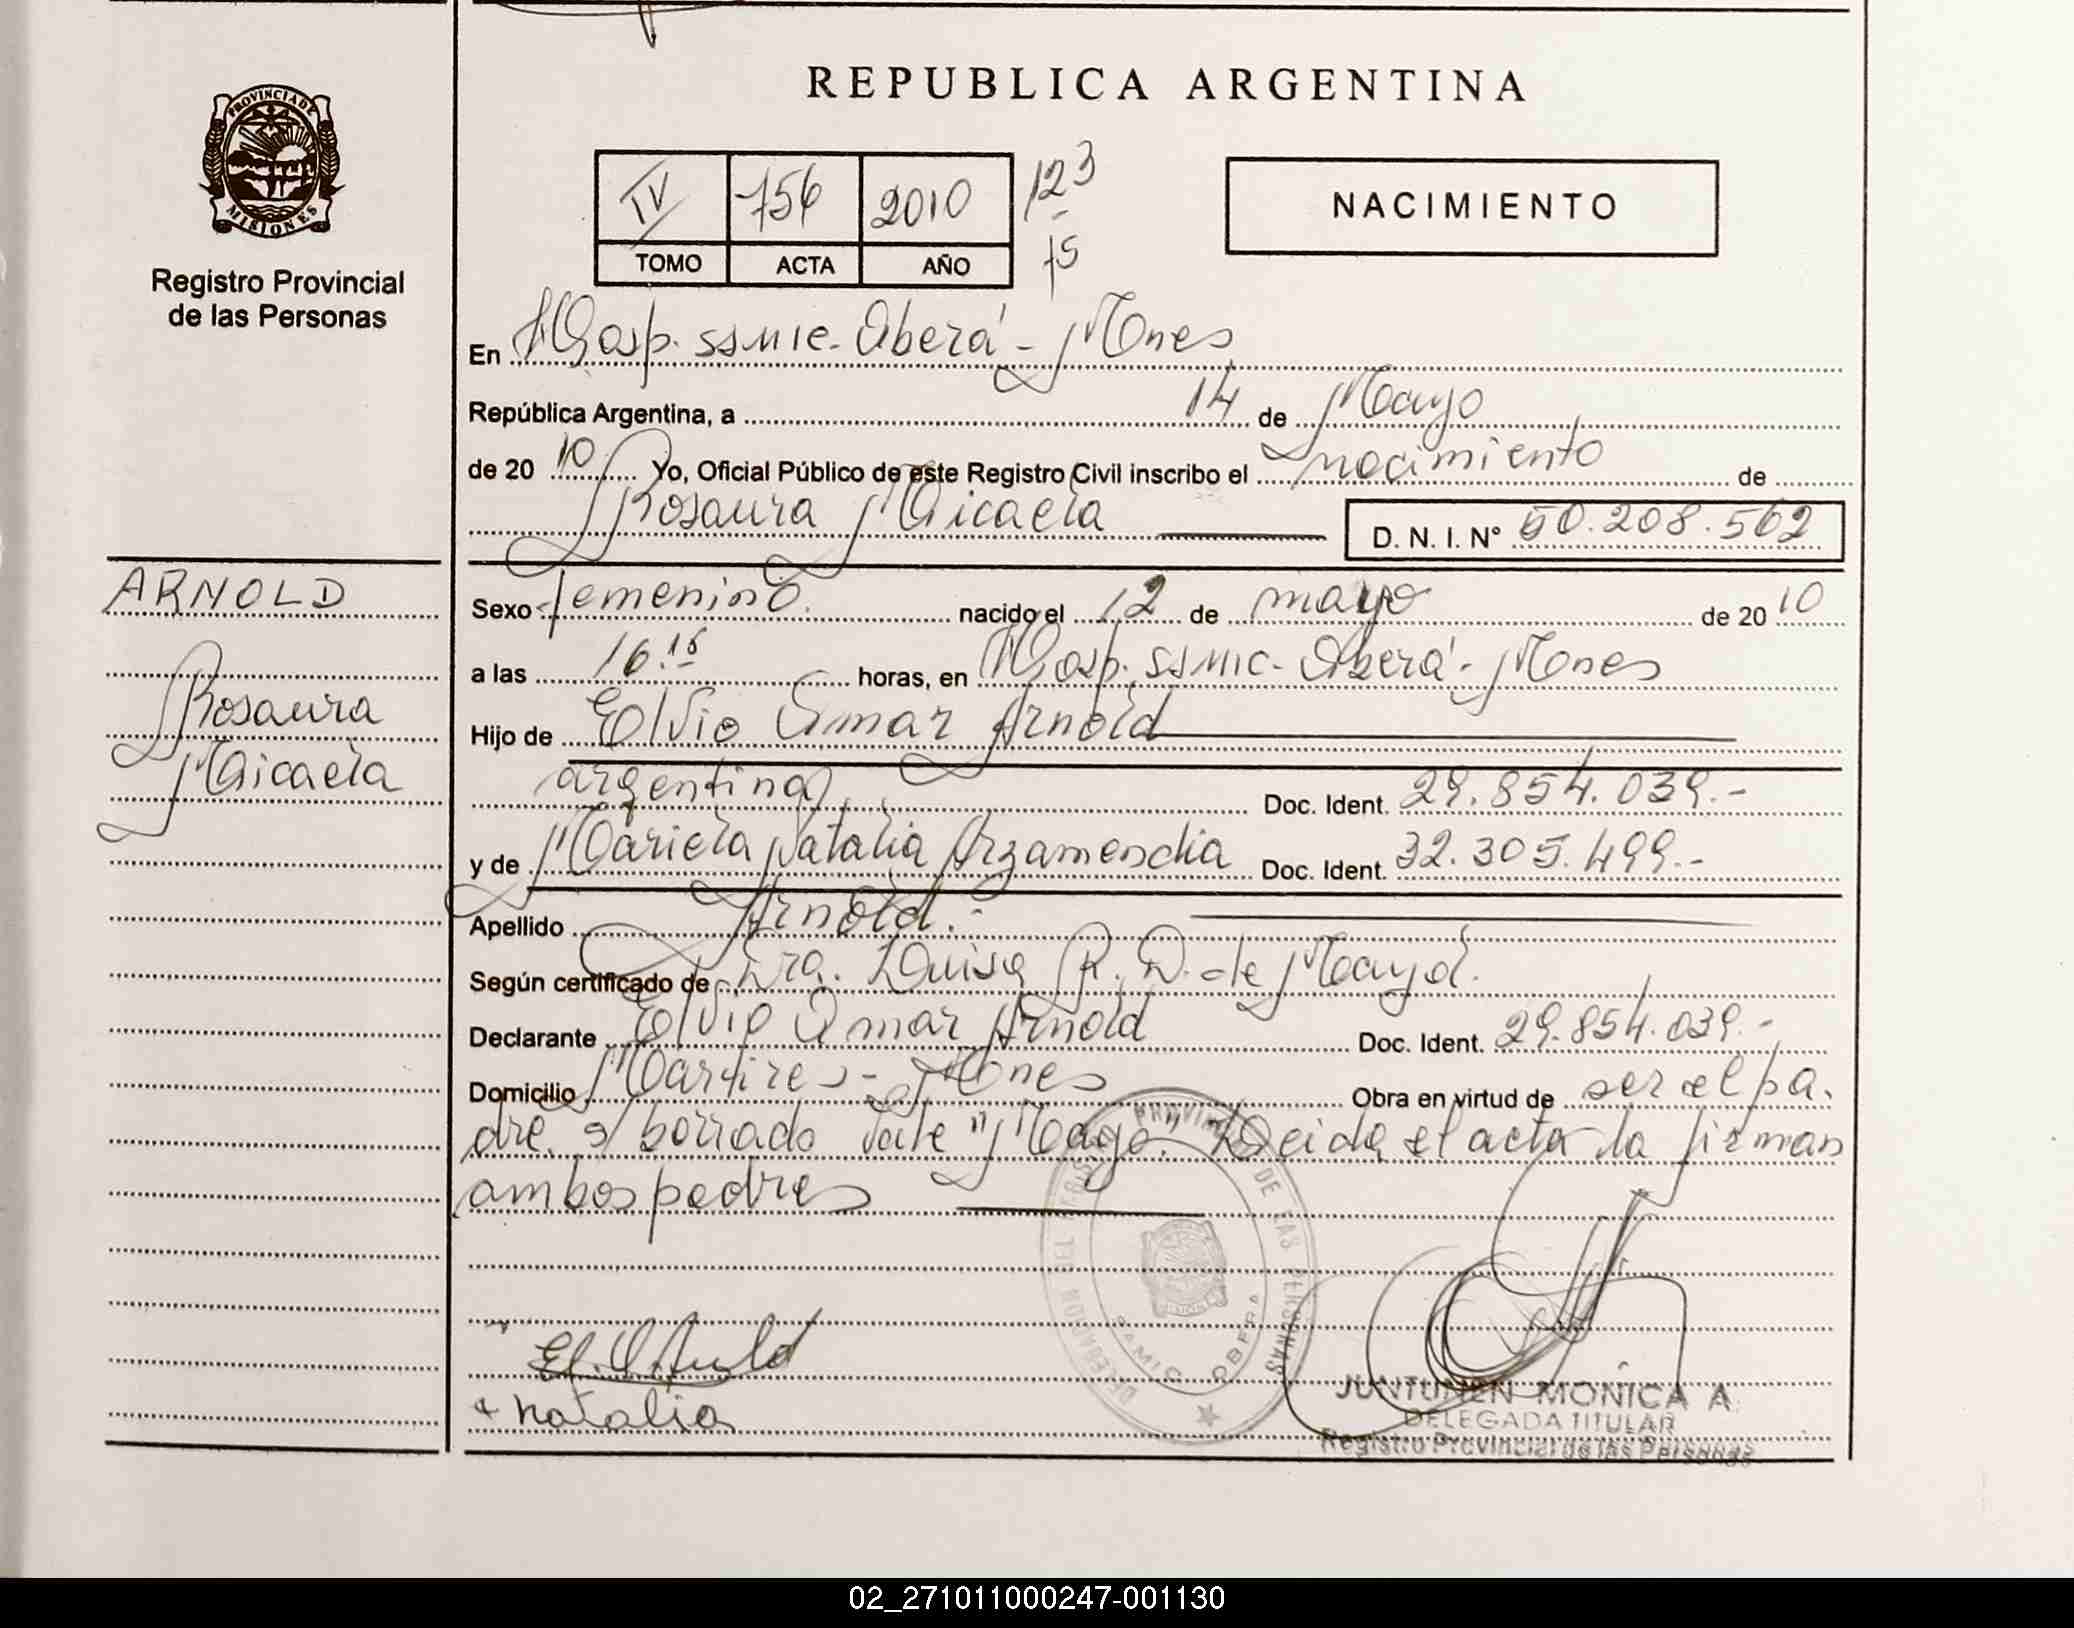 REPUBLICA ARGENTINA
PROVINCIA DE
MISIONES
Registro Provincial
de las Personas
IV 756 2010 123
TOMO ACTA AÑO 75
NACIMIENTO
En Hosp. SSMIC. Oberá - Mones
República Argentina, a 14 de Mayo
de 2010 Yo, Oficial Público de este Registro Civil inscribo el nacimiento de
Rosaura Micaela D. N. I. N° 50.208.562
ARNOLD
Rosaura
Micaela
Sexo femenino nacido el 12 de mayo de 2010
a las 16.15 horas, en Hosp. SSMIC - Oberá - Mones
Hijo de Elvio Omar Arnold
argentina Doc. Ident. 29.854.039.-
y de Mariela Natalia Arzamendia Doc. Ident. 32.305.499.-
Apellido Arnold.-
Según certificado de Dra. Luisa R. D. de Mayol.
Declarante Elvio Omar Arnold Doc. Ident. 29.854.039.-
Domicilio Martires - Mones Obra en virtud de ser el pa.
dre. s/ borrado vale "Mayo". Leida el acta la firman
ambos padres
El. O Arnold
Natalia
DELEGACION DEL REGISTRO PROVINCIAL DE LAS PERSONAS
SAMIC OBERA
JUNTUNEN MONICA A.
DELEGADA TITULAR
Registro Provincial de las Personas
02_271011000247-001130